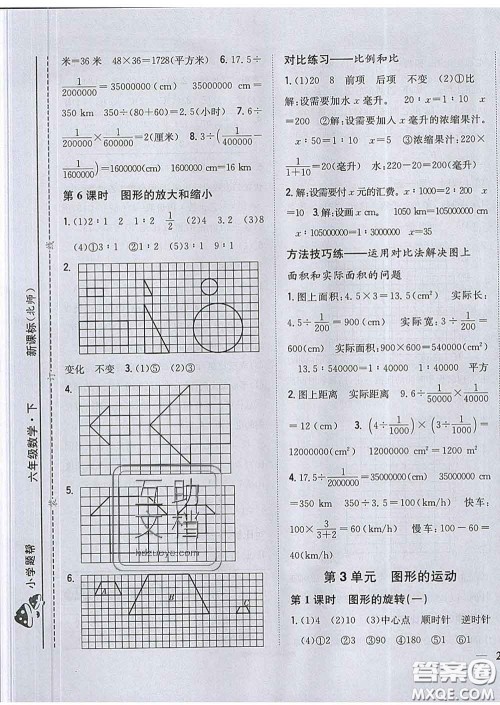 米=36 米  48×36=1728(平方米)  6. 17.5÷
1/2000000=35000000(cm)  35000000 cm=
350 km  350÷(80+60)=2.5(小时)  7. 6÷
1/2000000×1/6000000=2(厘米)  8. 3÷(1/400000
1/1600000)=1600000(cm)  1600000 cm=16 km
第 6 课时  图形的放大和缩小
1. (1)2∶1  2  1∶2  1/2  (2)4  3.2  (3)8
(4)①3∶1  ②1∶2  (5)9∶1
2.
变化  不变  3. (1)⑤  (2)③
4.
5.
6.
A
B
对比练习——比例和比
1. (1)20  8  前项  后项  不变  (2)①比
解:设需要加水 x 毫升。  20∶x=1∶10
x=200  ②解:设需要加入 x 毫升的浓缩果汁。
x∶50=1∶10  x=5  ③浓缩果汁:220×
1/(1+10)=20(毫升)  水:220-20=200(毫升)
2. 解:设需要付 x 元的汇费。x∶1000=2∶200
x=10  3. 解:设画 x cm。  1050 km=105000000 cm
x∶105000000=1∶3000000  x=35
方法技巧练——运用对比法解决图上
面积和实际面积的问题
1. 图上面积:4.5×3=13.5(cm²)  实际长:
4.5÷1/200=900(cm)  实际宽:3÷1/200=
600(cm)  实际面积:900×600=540000
(cm²)  13.5∶540000=1∶40000
2. 图上距离  实际距离  9.6÷1/50000×
1/40000=12(cm)  3. (4÷1/1000)×(3÷1/1000)=
12000000(cm²)  12000000 cm²=1200 m²
4. 17.5÷1/2000000=35000000(cm)  35000000 cm
=350 km  350÷3.5=100(km/h)  快车:
100×3/(3+2)=60(km/h)  慢车:100-60=
40(km/h)
第 3 单元  图形的运动
第 1 课时  图形的旋转(一)
1. (1)4  (2)10  (3)中心点  顺时针  逆时针
(4)①2  ②3  ③90  ④180  ⑤1  ⑥1
2
新课标(北师)
六年级数学·下
小学题帮
线
订
装
互助
文档
hdzuoye.com
答案圈
MXQE.COM